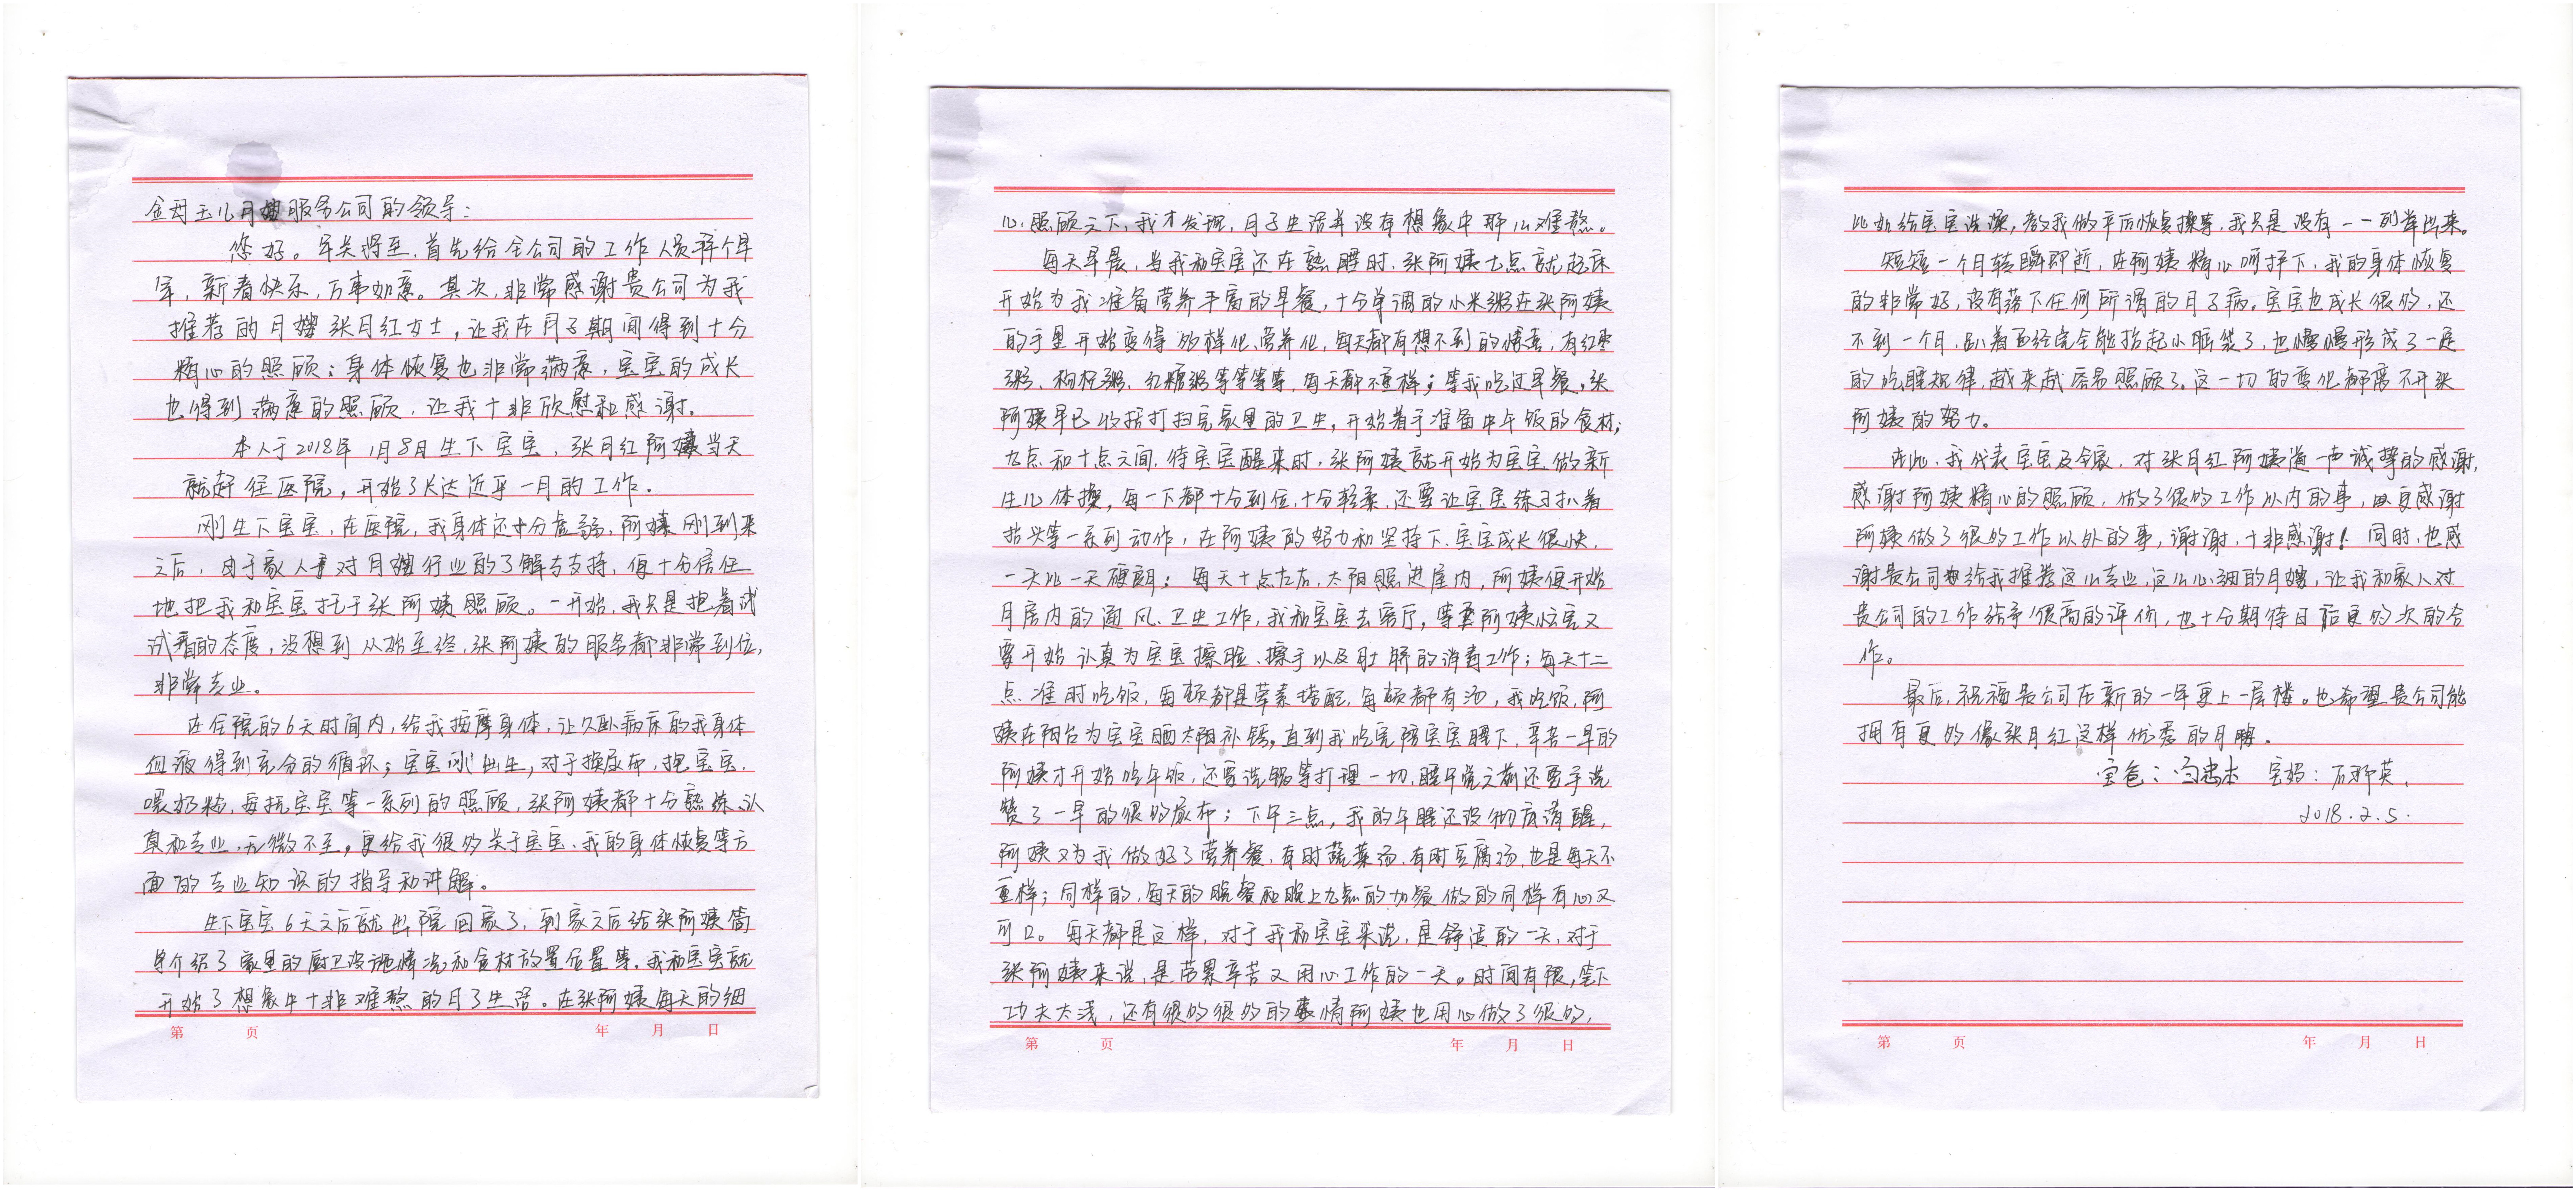 金母玉儿月嫂服务公司的领导：
您好。年关将至，首先给全公司的工作人员拜个早
年，新春快乐，万事如意。其次，非常感谢贵公司为我
推荐的月嫂张月红女士，让我在月子期间得到十分
精心的照顾；身体恢复也非常满意，宝宝的成长
也得到满意的照顾，让我十非欣慰和感谢。
本人于2018年1月8日生下宝宝，张月红阿姨当天
就赶往医院，开始了长达近乎一月的工作.
刚生下宝宝，在医院，我身体还十分虚弱，阿姨刚到来
之后，由于家人对月嫂行业的了解与支持，便十分信任
地把我和宝宝托于张阿姨照顾。一开始，我只是抱着试
试看的态度，没想到从始至终，张阿姨的服务都非常到位，
非常专业。
在住院的6天时间内，给我按摩身体，让久卧病床的我身体
血液得到充分的循环；宝宝刚出生，对于换尿布，抱宝宝，
喂奶粉，安抚宝宝等一系列的照顾，张阿姨都十分熟练、认
真和专业，无微不至，更给我很多关于宝宝、我的身体恢复等方
面的专业知识的指导和讲解。
生下宝宝6天之后就出院回家了，到家之后给张阿姨简
单介绍了家里的厨卫设施情况和食材放置位置等，我和宝宝就
开始了想象中十非难熬的月子生活。在张阿姨每天的细
第 页 年 月 日
心照顾之下，我才发现，月子生活并没有想象中那么难熬。
每天早晨，当我和宝宝还在熟睡时，张阿姨七点就起床
开始为我准备营养丰富的早餐，十分单调的小米粥在张阿姨
的手里开始变得多样化、营养化，每天都有想不到的惊喜，有红枣
粥、枸杞粥、红糖粥等等等等，每天都不重样；等我吃过早餐，张
阿姨早已收拾打扫完家里的卫生，开始着手准备中午饭的食材；
九点和十点之间，待宝宝醒来时，张阿姨就开始为宝宝做新
生儿体操，每一下都十分到位，十分轻柔，还要让宝宝练习趴着
抬头等一系列动作，在阿姨的努力和坚持下，宝宝成长很快，
一天比一天硬朗；每天十点左右，太阳照进屋内，阿姨便开始
月房内的通风、卫生工作，我和宝宝去客厅，等阿姨忙完又
要开始认真为宝宝擦脸、擦手以及肚脐的消毒工作；每天十二
点准时吃饭，每顿都是荤素搭配，每顿都有汤，我吃饭，阿
姨在阳台为宝宝晒太阳补钙，直到我吃完陪宝宝睡下，辛苦一早的
阿姨才开始吃午饭，还要洗锅等打理一切，睡午觉之前还要手洗
攒了一早的很多尿布；下午三点，我的午睡还没彻底清醒，
阿姨又为我做好了营养餐，有时蔬菜汤，有时豆腐汤，也是每天不
重样；同样的，每天的晚餐和晚上九点的加餐做的同样有心又
可口。每天都是这样，对于我和宝宝来说，是舒适的一天，对于
张阿姨来说，是劳累辛苦又用心工作的一天。时间有限，笔下
功夫太浅，还有很多很多的事情阿姨也用心做了很多，
第 页 年 月 日
比如给宝宝洗澡，教我做产后恢复操等，我只是没有一一列举出来。
短短一个月转瞬即逝，在阿姨精心呵护下，我的身体恢复
的非常好，没有落下任何所谓的月子病。宝宝也成长很多，还
不到一个月，趴着已经完全能抬起小脑袋了，也慢慢形成了一定
的吃睡规律，越来越容易照顾了。这一切的变化都离不开张
阿姨的努力。
在此，我代表宝宝及全家，对张月红阿姨道一声诚挚的感谢，
感谢阿姨精心的照顾，做了很多工作以内的事，更感谢
阿姨做了很多工作以外的事，谢谢，十非感谢！同时，也感
谢贵公司给我推荐这么专业，这么心细的月嫂，让我和家人对
贵公司的工作给予很高的评价，也十分期待日后更多次的合
作。
最后，祝福贵公司在新的一年更上一层楼。也希望贵公司能
拥有更多像张月红这样优秀的月嫂.
宝爸： 宝妈：
2018.2.5.
第 页 年 月 日